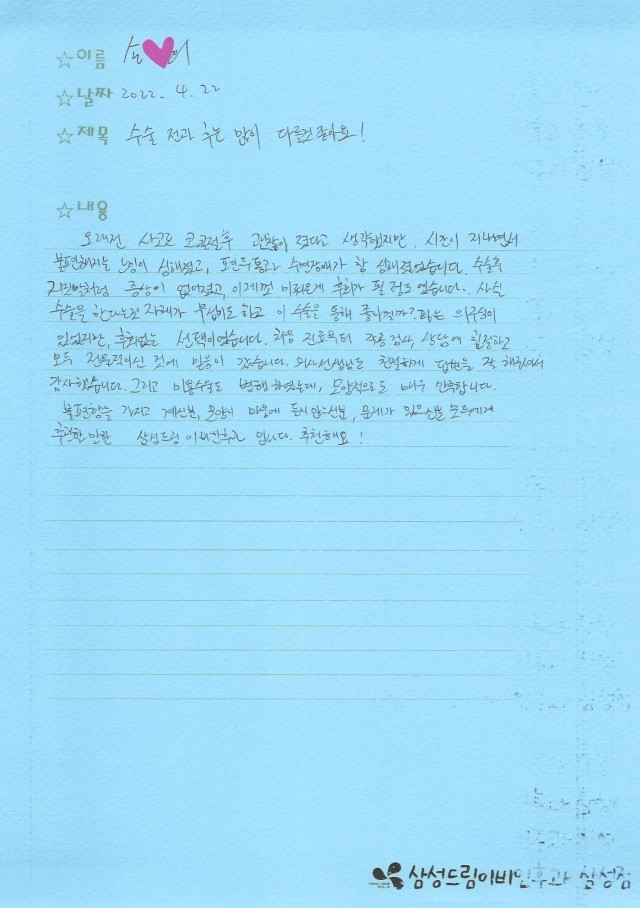 ☆이름 손♥
☆날짜 2022. 4. 22
☆제목 수술 전과 후는 많이 다를걸 좋아요!
☆내용
오래전 사고로 코골절후 괜찮아 졌다고 생각했지만, 시간이 지나면서
불편해지는 느낌이 심해졌고, 편두통과 수면장애가 참 심해졌었습니다. 수술후
거짓말처럼 증상이 없어졌고, 이제껏 미뤄온게 후회가 될 정도였습니다. 사실
수술을 한다는것 자체가 무섭기도 하고 이 수술을 통해 좋아질까? 라는 의구심이
있었지만, 후회없는 선택이었습니다. 처음 진료부터 각종검사, 상담에 친절하고
모두 전문적이신 것에 믿음이 갔습니다. 의사선생님도 친절하게 답변을 잘 해주셔서
감사했습니다. 그리고 미용수술도 병행 하였는데, 모양적으로도 매우 만족합니다.
불편함을 가지고 계신분, 모양이 마음에 들지 않으신분, 문제가 있으신분 모두에게
추천할 만한 삼성드림 이비인후과 입니다. 추천해요!
삼성드림이비인후과 삼성점